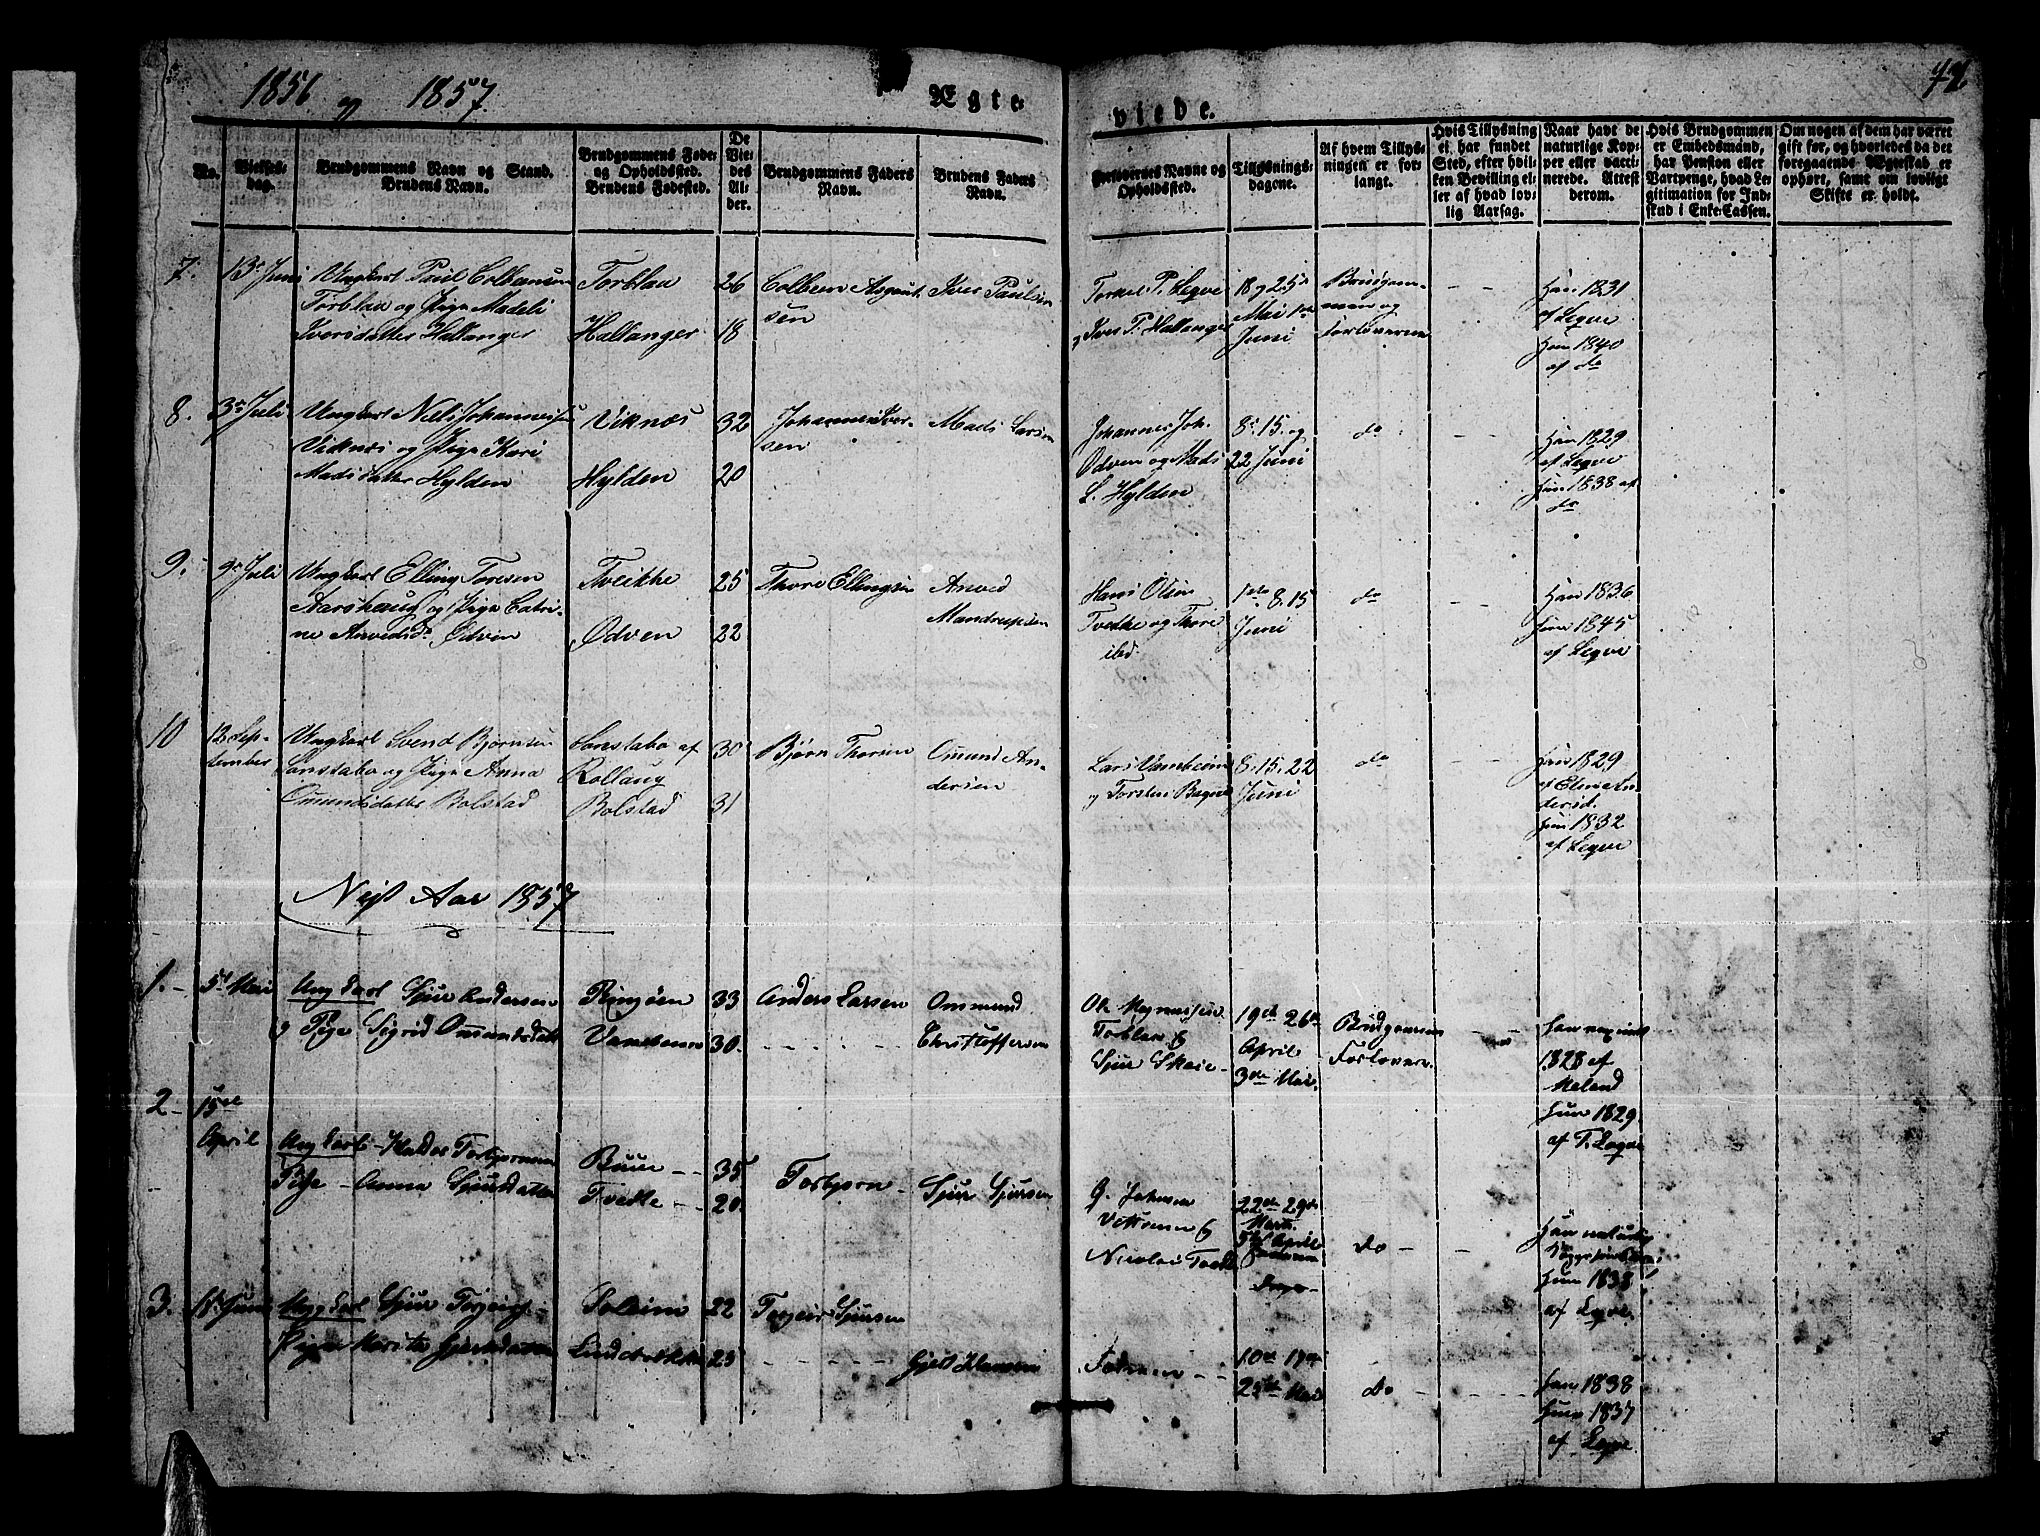 1856 og 1857.
Ægte-
viede.
No.
Vielses-
dag.
Brudgommens Navn og Stand.
Brudens Navn.
Brudgommens Føde-
og Opholdssted.
Brudens Fødested.
De
Vie-
des
Al-
der.
Brudgommens Faders
Navn.
Brudens Faders
Navn.
Forlovernes Navne og
Opholdssted.
Tillysnings-
dagene.
Af hvem Tillys-
ningen er for-
langt.
Hvis Tillysning
ei har fundet
Sted, efter hvil-
ken Bevilling el-
ler af hvad lov-
lig Aarsag.
Naar havt de
naturlige Kop-
per eller vacci-
nerede. Attest
derom.
Hvis Brudgommen
er Embedsmand,
har Pension eller
Vartpenge, hvad Le-
gitimation for Ind-
skud i Enke-Cassen.
Om nogen af dem har været
gift før, og hvorledes da det
foregaaende Ægteskab er
ophørt, samt om lovligt
Skifte er holdt.
7. 13de Juni Ungkarl Poul Colbensen
Torblaa og Pige Madeli
Iversdatter Hallanger
Torblaa 26
Hallanger 18
Colben Aagaut-
sen
Iver Paulsen
Torkel P. Legve
og Iver P. Hallanger
18 og 25de
Mai 1ste
Juni
Brudgom-
men og
Forloverne
Han 1831
af Legve
Hun 1840
af do
8. 3de Juli Ungkarl Niels Johannessen
Viknæs og Pige Kari
Madsdatter Hylden
Viknæs 32
Hylden 20
Johannes Iver-
sen
Mads Larsen
Johannes Joh.
Odven og Mads
L. Hylden
8de 15. og
22 Juni
do
Han 1829
af Legve
Hun 1838 af
do
9. 9de Juli Ungkarl Elling Toresen
Aarshaug og Pige Catri-
ne Arvedsd. Odven
Tveithe 25
Odven 22
Thore Ellingsen
Arved
Mandrupsen
Hans Olsen
Tvedte og Thore
ibd.
1ste 8. 15
Juni
do
Han 1836
Hun 1845
af Legve
10 12 Sep-
tember
Ungkarl Svend Bjørnsen
Lonstabo og Pige Anna
Omundsdatter Bolstad
Lonstabo af
Rollaug
Bolstad
30
31
Bjørn Thorsen
Omund An-
dersen
Lars
og Torsten
8. 15. 22
Juni
do
Han 1829
af An-
dersd.
Hun 1832
af Legve
Nyt Aar 1857
1. 5te Mai Ungkarl Sjur Andersen
og Pige Sigrid Omundsdatter
Ringøen 33
30.
Anders Larsen
Ommund
Christoffersen
Ole Magnussen
Torblaa &
Sjur Skaie
19de 26de
April
3de Mai.
Brudgommen
Forloverne
Han
1828 af
Meland
Hun 1829
af T. Legve
2. 15de
April
Ungkarl Halder Torbjørnsen
Pige Anna Sjursdatter
Buue 35
Tvedte 20
Torbjørn
Sjur Sjursen
G. Johnsen
&
Nicolai Tvedte
22de 29de
Marts
5te April
do
Han naturlig
Hun 1838
af Legve.
3. Juni Ungkarl Sjur Torgeirs-
Pige Marita Gjertsdatter
22
25
Torgeir Sjursen
Gjert Hansen
10de 17de
Mai
do
Han 1838
Hun 1837
af Legve